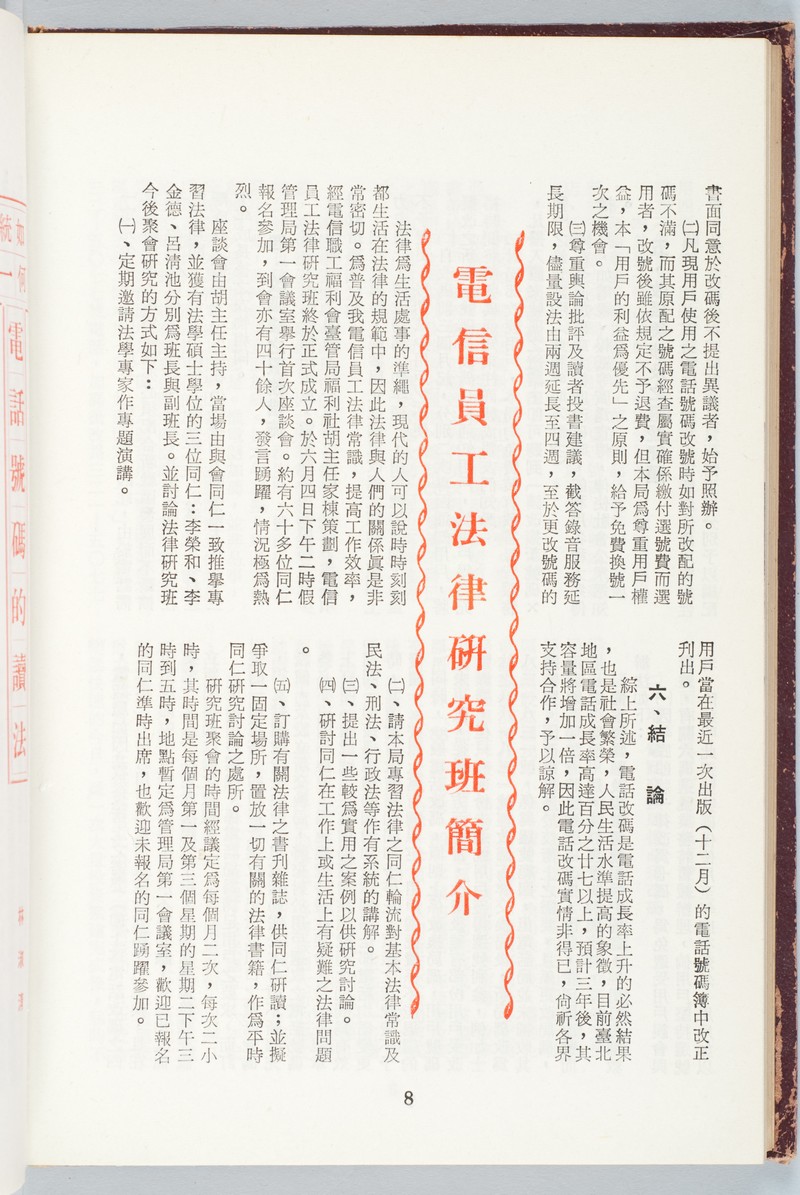 書面同意於改碼後不提出異議者，始予照辦。
㈡凡現用戶使用之電話號碼改號時如對所改配的號
碼不滿，而其原配之號碼經查屬實確係繳付選號費而選
用者，改號後雖依規定不予退費，但本局爲尊重用戶權
益，本「用戶的利益爲優先」之原則，給予免費換號一
次之機會。
㈢尊重輿論批評及讀者投書建議，截答錄音服務延
長期限，儘量設法由兩週延長至四週，至於更改號碼的
用戶當在最近一次出版（十二月）的電話號碼簿中改正
刋出。
六、結　論
綜上所述，電話改碼是電話成長率上升的必然結果
，也是社會繁榮，人民生活水準提高的象徵，目前臺北
地區電話成長率高達百分之廿七以上，預計三年後，其
容量將增加一倍，因此電話改碼實情非得已，尙祈各界
支持合作，予以諒解。
電信員工法律研究班簡介
法律爲生活處事的準繩，現代的人可以說時時刻刻
都生活在法律的規範中，因此法律與人們的關係眞是非
常密切。爲普及我電信員工法律常識，提高工作效率，
經電信職工福利會臺管局福利社胡主任家棟策劃，電信
員工法律研究班終於正式成立。於六月四日下午二時假
管理局第一會議室舉行首次座談會。約有六十多位同仁
報名參加，到會亦有四十餘人，發言踴躍，情況極爲熱
烈。
座談會由胡主任主持，當場由與會同仁一致推舉專
習法律，並獲有法學碩士學位的三位同仁：李榮和、李
金德、呂清池分別爲班長與副班長。並討論法律研究班
今後聚會研究的方式如下：
㈠、定期邀請法學專家作專題演講。
㈡、請本局專習法律之同仁輪流對基本法律常識及
民法、刑法、行政法等作有系統的講解。
㈢、提出一些較爲實用之案例以供研究討論。
㈣、研討同仁在工作上或生活上有疑難之法律問題
。
㈤、訂購有關法律之書刋雜誌，供同仁研讀；並擬
爭取一固定場所，置放一切有關的法律書籍，作爲平時
同仁研究討論之處所。
研究班聚會的時間經議定爲每個月二次，每次二小
時，其時間是每個月第一及第三個星期的星期二下午三
時到五時，地點暫定爲管理局第一會議室，歡迎已報名
的同仁準時出席，也歡迎未報名的同仁踴躍參加。
8
如何
統一
電話號碼的讀法